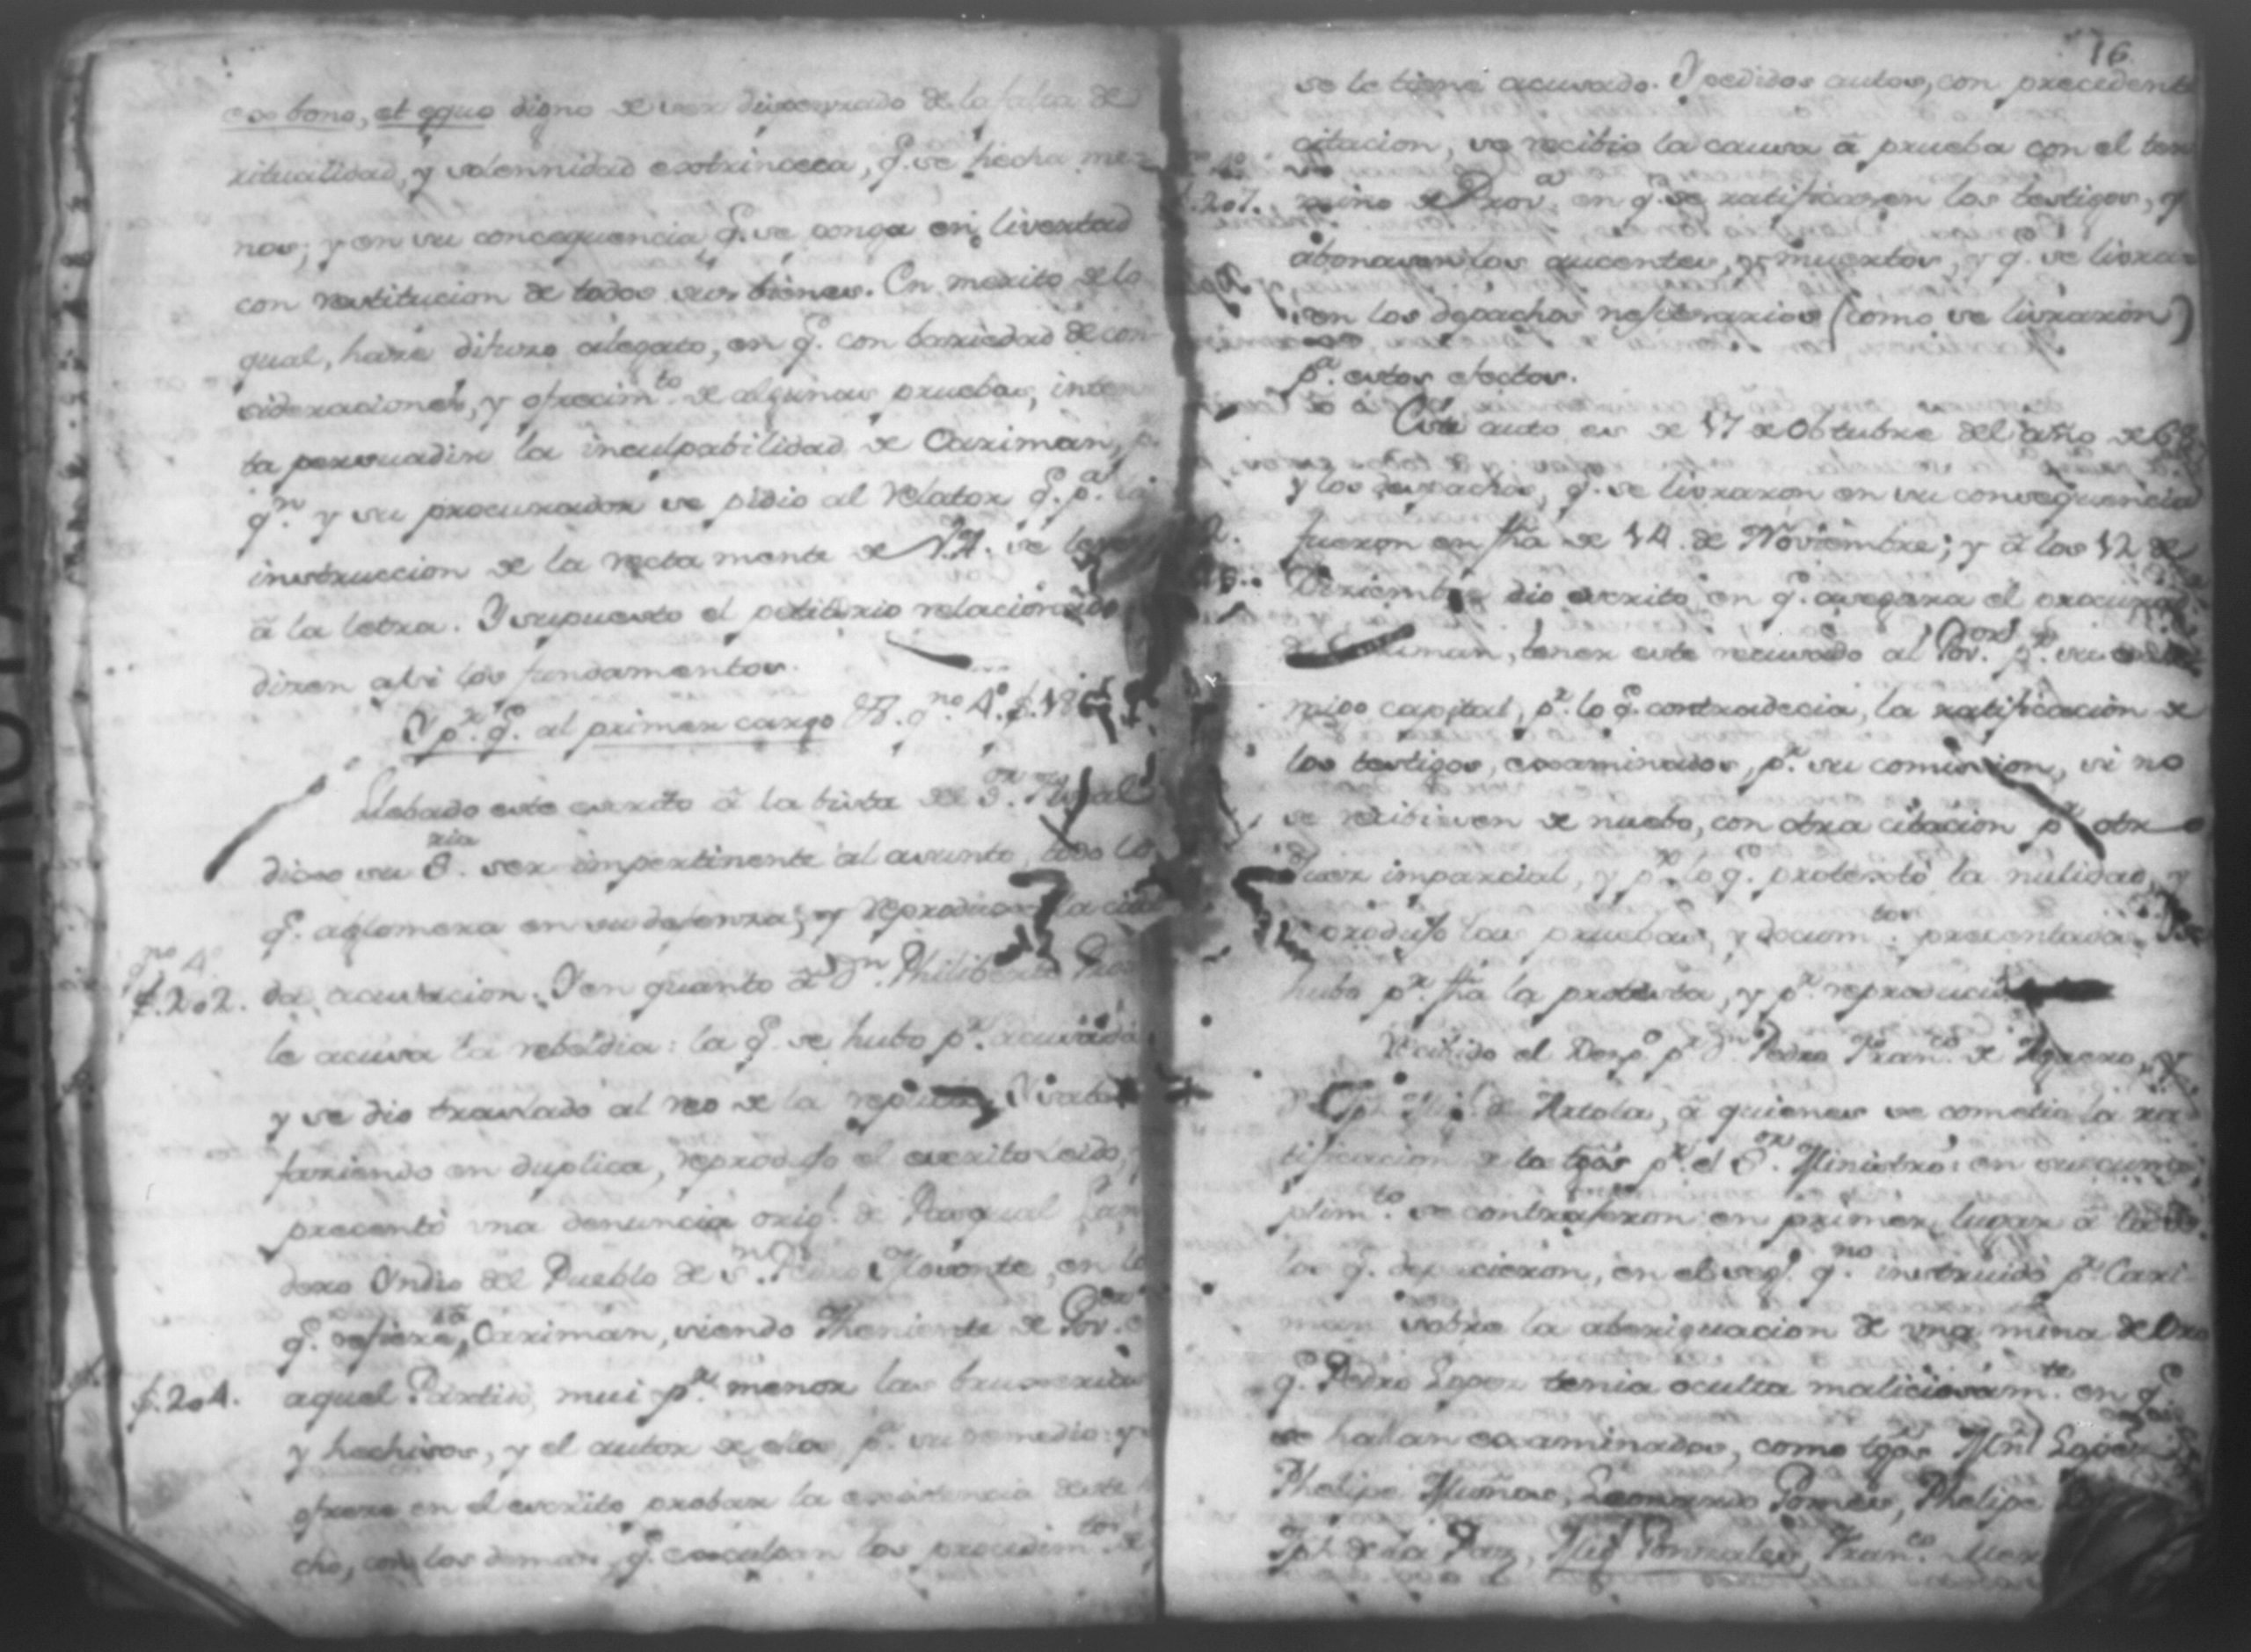 ex bono, et equo digno de ser dispensado de la falta de
ritualidad, y solennidad extrinceca, q.e se hecha me-
nos; y en su consequencia q.e se ponga en livertad
con restitucion de todos sus bienes. En merito de lo
qual, hará difuso alegato, en q.e con bariedad de con
sideraciones, y ofrecim.to de algunas pruebas, inten
ta persuadir la inculpabilidad de Cariman, p.r
q.n y su procurador se pidio al Relator q.e p.a la
instruccion de la recta mente de V.A. se leyera
â la letra. Y supuesto el petitorio relacionado
diren asi los fundamentos.
Y p.r q.e al primer cargo &.a q.no 4.o f. 186
Llebado este escrito â la vista del S.or Fiscal
dixo su S.ria ser impertinente al asunto, todo lo
q.e aglomera en su defenza; y reproduxo la cita
q.no 4.o
f. 202. da acusacion. Y en quanto â D.n Philiberto
le acusa la rebeldia: la q.e se hubo p.r acusada
y se dio traslado al reo de la replica. Y satis
faziendo en duplica, reprodujo el escrito leido,
precentó una denuncia orig.l de Pasqual
dero Yndio del Pueblo de S.n Pedro, en la
q.e refiere â Cariman, siendo Theniente de Gov.or
f. 204. aquel Partido, mui p.r menor las bruxerias
y hechisos, y el autor de ellos p.a su remedio: y
ofreze en el escrito probar la existencia de este he
cho, con los demas q.e exculpan los procedim.tos de
16
se le tiene acusado. Y pedidos autos, con precedente
citacion, se recibio la causa â prueba con el ter
f. 207. mino de Prov.a en q.e se ratificasen los testigos, y
abonasen los aucentes, y muertos, y q.e se libra
sen los despachos nesesarios (como se libraron)
p.a estos efectos.
Este auto es de 17 de Obtubre del año de 68
y los despachos, q.e se libraron en su consequencia
fueron en fha de 14 de Noviembre; y â los 12 de
Diziembre dio escrito en q.e asegura el procurador
de Cariman, tener este recusado al Gov.or p.r su ene
migo capital, p.r lo q.e contradecia, la ratificacion de
los testigos, examinados, p.r su comision, si no
se recibiesen de nuebo, con otra citacion p.r otro
Juez imparcial, y p.r lo q.e protextó la nulidad, y
reprodujo las pruebas, y docum.tos precentados. Se
hubo p.r fha la protesta, y p.r reproducido
Recibido el Desp.o p.r D.n Pedro Fran.co de Aguero, y
D.n Jph Mig.l de Artola, â quienes se cometio la ra
tificacion de los tgos p.r el S.or Ministro: en su cump
plim.to se contrajeron en primer lugar â todos
los q.e depucieron, en el seg.do q.no instruido p.r Cari
man sobre la aberiguacion de una mina de Oro
q.e Pedro Lopez tenia oculta maliciosam.te en q.e
se hallan examinados, como tgos M.nl Lopez
Phelipe Muños, Leonardo Pomes, Phelipe
Jph de la Paz, Mig.l Gonzales, Fran.co